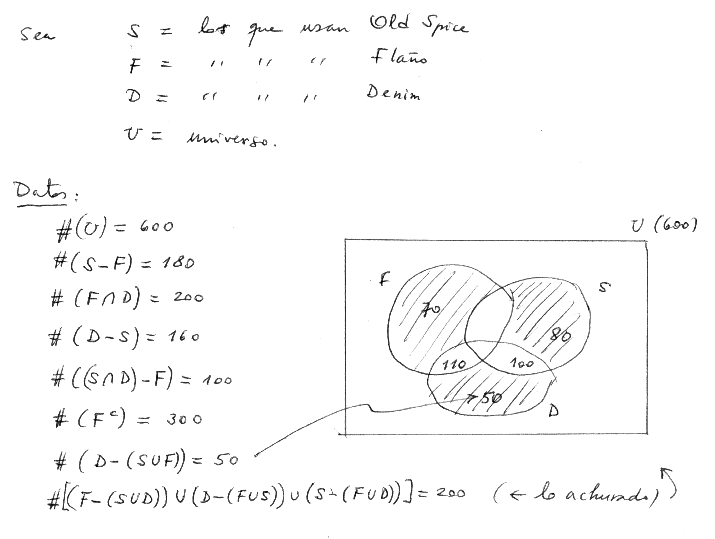 Sea S = los que usan Old Spice
F = " " " Flaño
D = " " " Denim
U = universo.
Datos:
#(U) = 600
#(S-F) = 180
#(F∩D) = 200
#(D-S) = 160
#((S∩D)-F) = 100
#(Fᶜ) = 300
#(D-(S∪F)) = 50
#[(F-(S∪D)) ∪ (D-(F∪S)) ∪ (S-(F∪D))] = 200 (← lo achurado)
U (600)
F
S
70
80
110
100
50
D